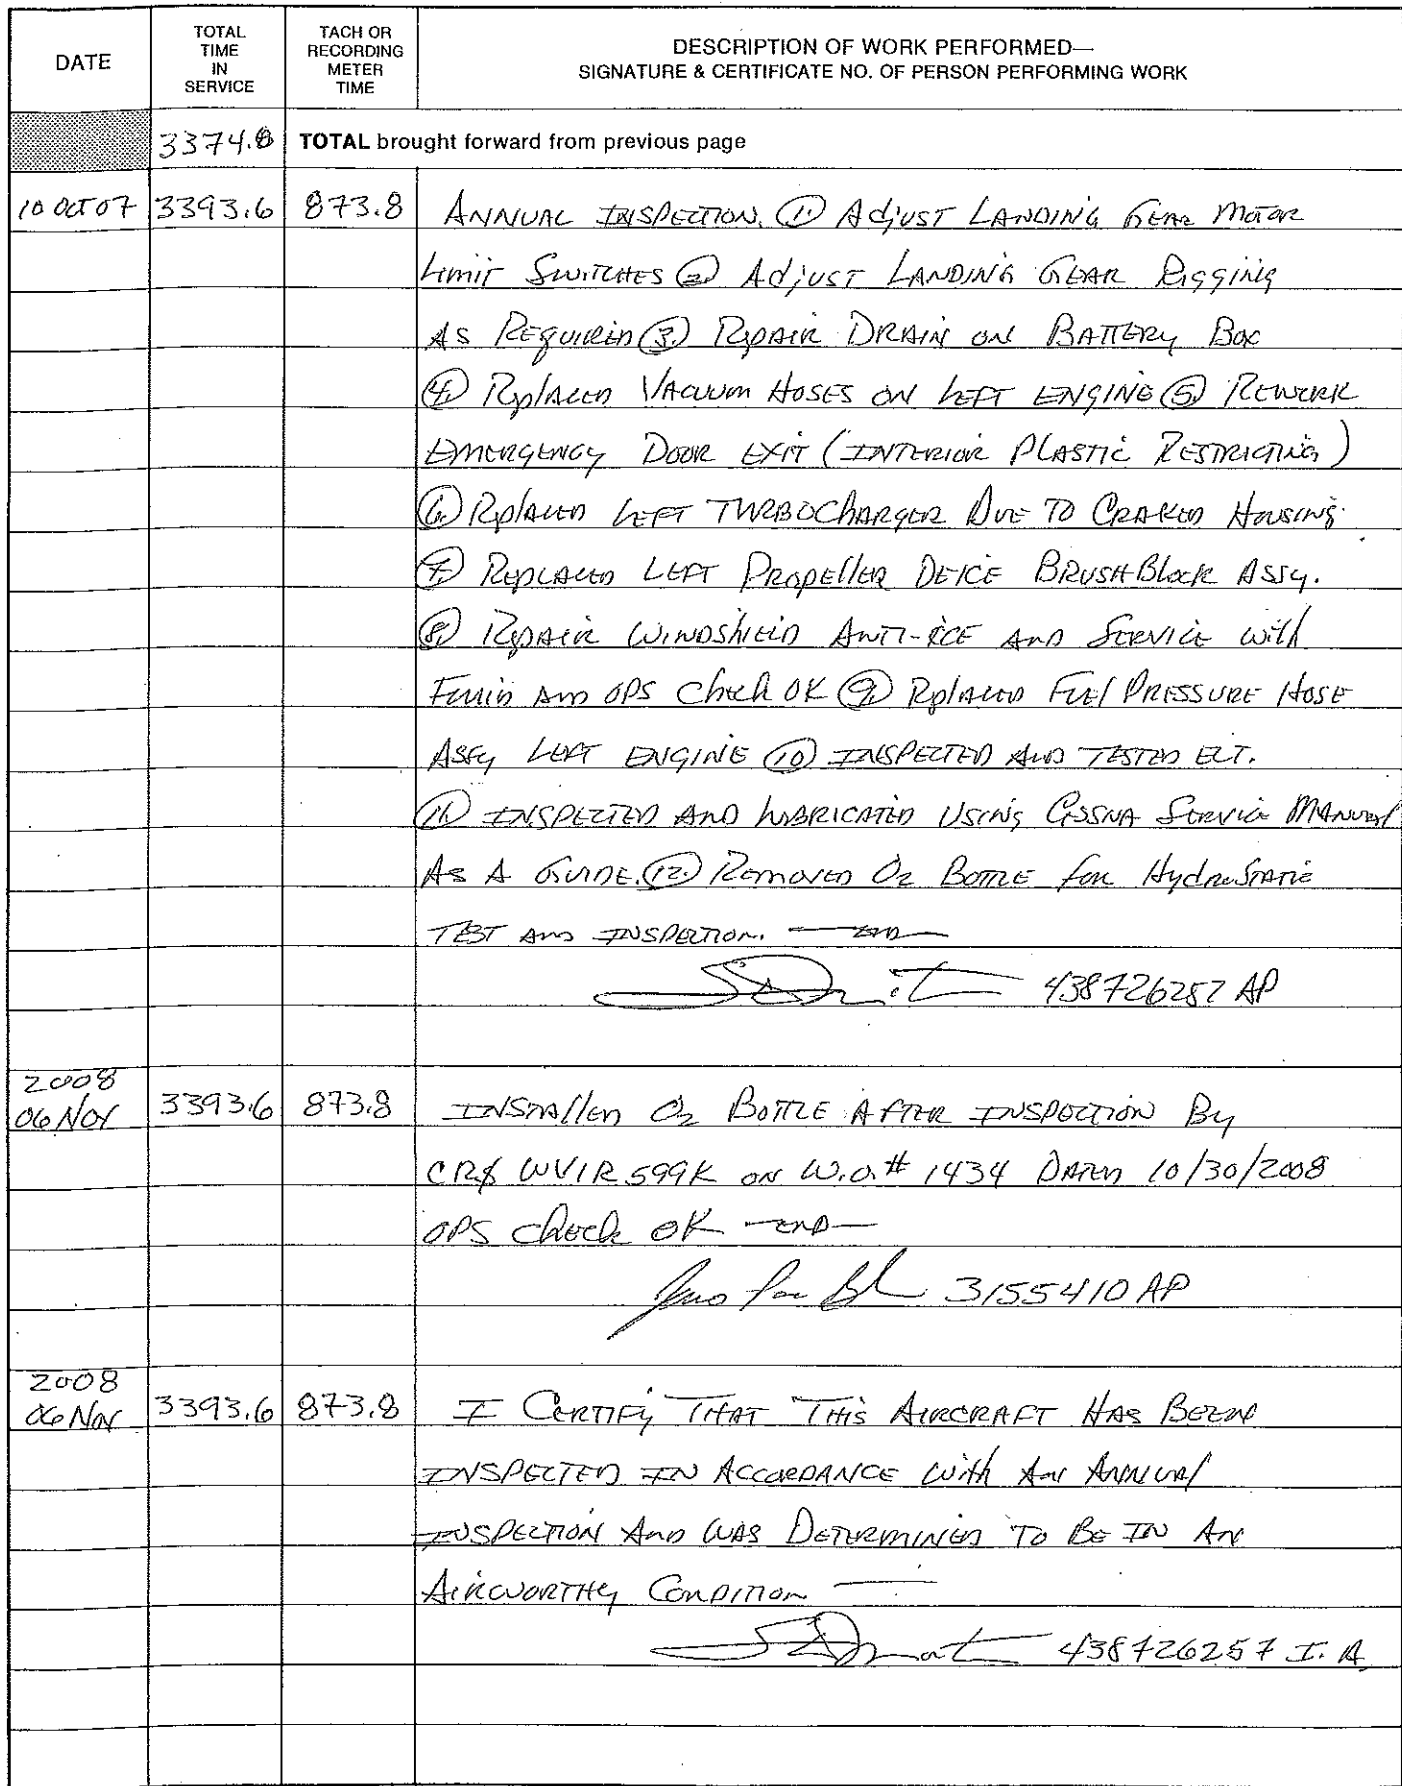 DATE
TOTAL TIME IN SERVICE
TACH OR RECORDING METER TIME
DESCRIPTION OF WORK PERFORMED—
SIGNATURE & CERTIFICATE NO. OF PERSON PERFORMING WORK
3374.8 TOTAL brought forward from previous page
10 OCT 07 3393.6 873.8 ANNUAL INSPECTION. (1.) ADJUST LANDING GEAR MOTOR
LIMIT SWITCHES (2) ADJUST LANDING GEAR RIGGING
AS REQUIRED (3.) REPAIR DRAIN ON BATTERY BOX
(4.) REPLACED VACUUM HOSES ON LEFT ENGINE (5) REWORK
EMERGENCY DOOR EXIT (INTERIOR PLASTIC RESTRICTING)
(6.) REPLACED LEFT TURBOCHARGER DUE TO CRAKED HOUSING.
(7.) REPLACED LEFT PROPELLER DEICE BRUSH BLOCK ASSY.
(8.) REPAIR WINDSHIELD ANTI-ICE AND SERVICE WITH
FLUID AND OPS CHECK OK (9.) REPLACED FUEL PRESSURE HOSE
ASSY LEFT ENGINE (10) INSPECTED AND TESTED ELT.
(11.) INSPECTED AND LUBRICATED USING CESSNA SERVICE MANUAL
AS A GUIDE. (12.) REMOVED O2 BOTTLE FOR HYDROSTATIC
TEST AND INSPECTION. — END —
438726257 AP
2008
06 NOV 3393.6 873.8 INSTALLED O2 BOTTLE AFTER INSPECTION BY
CRS WVIR599K ON W.O.# 1434 DATED 10/30/2008
OPS CHECK OK — END —
3155410 AP
2008
06 NOV 3393.6 873.8 I CERTIFY THAT THIS AIRCRAFT HAS BEEN
INSPECTED IN ACCORDANCE WITH AN ANNUAL
INSPECTION AND WAS DETERMINED TO BE IN AN
AIRWORTHY CONDITION —
438726257 I.A.